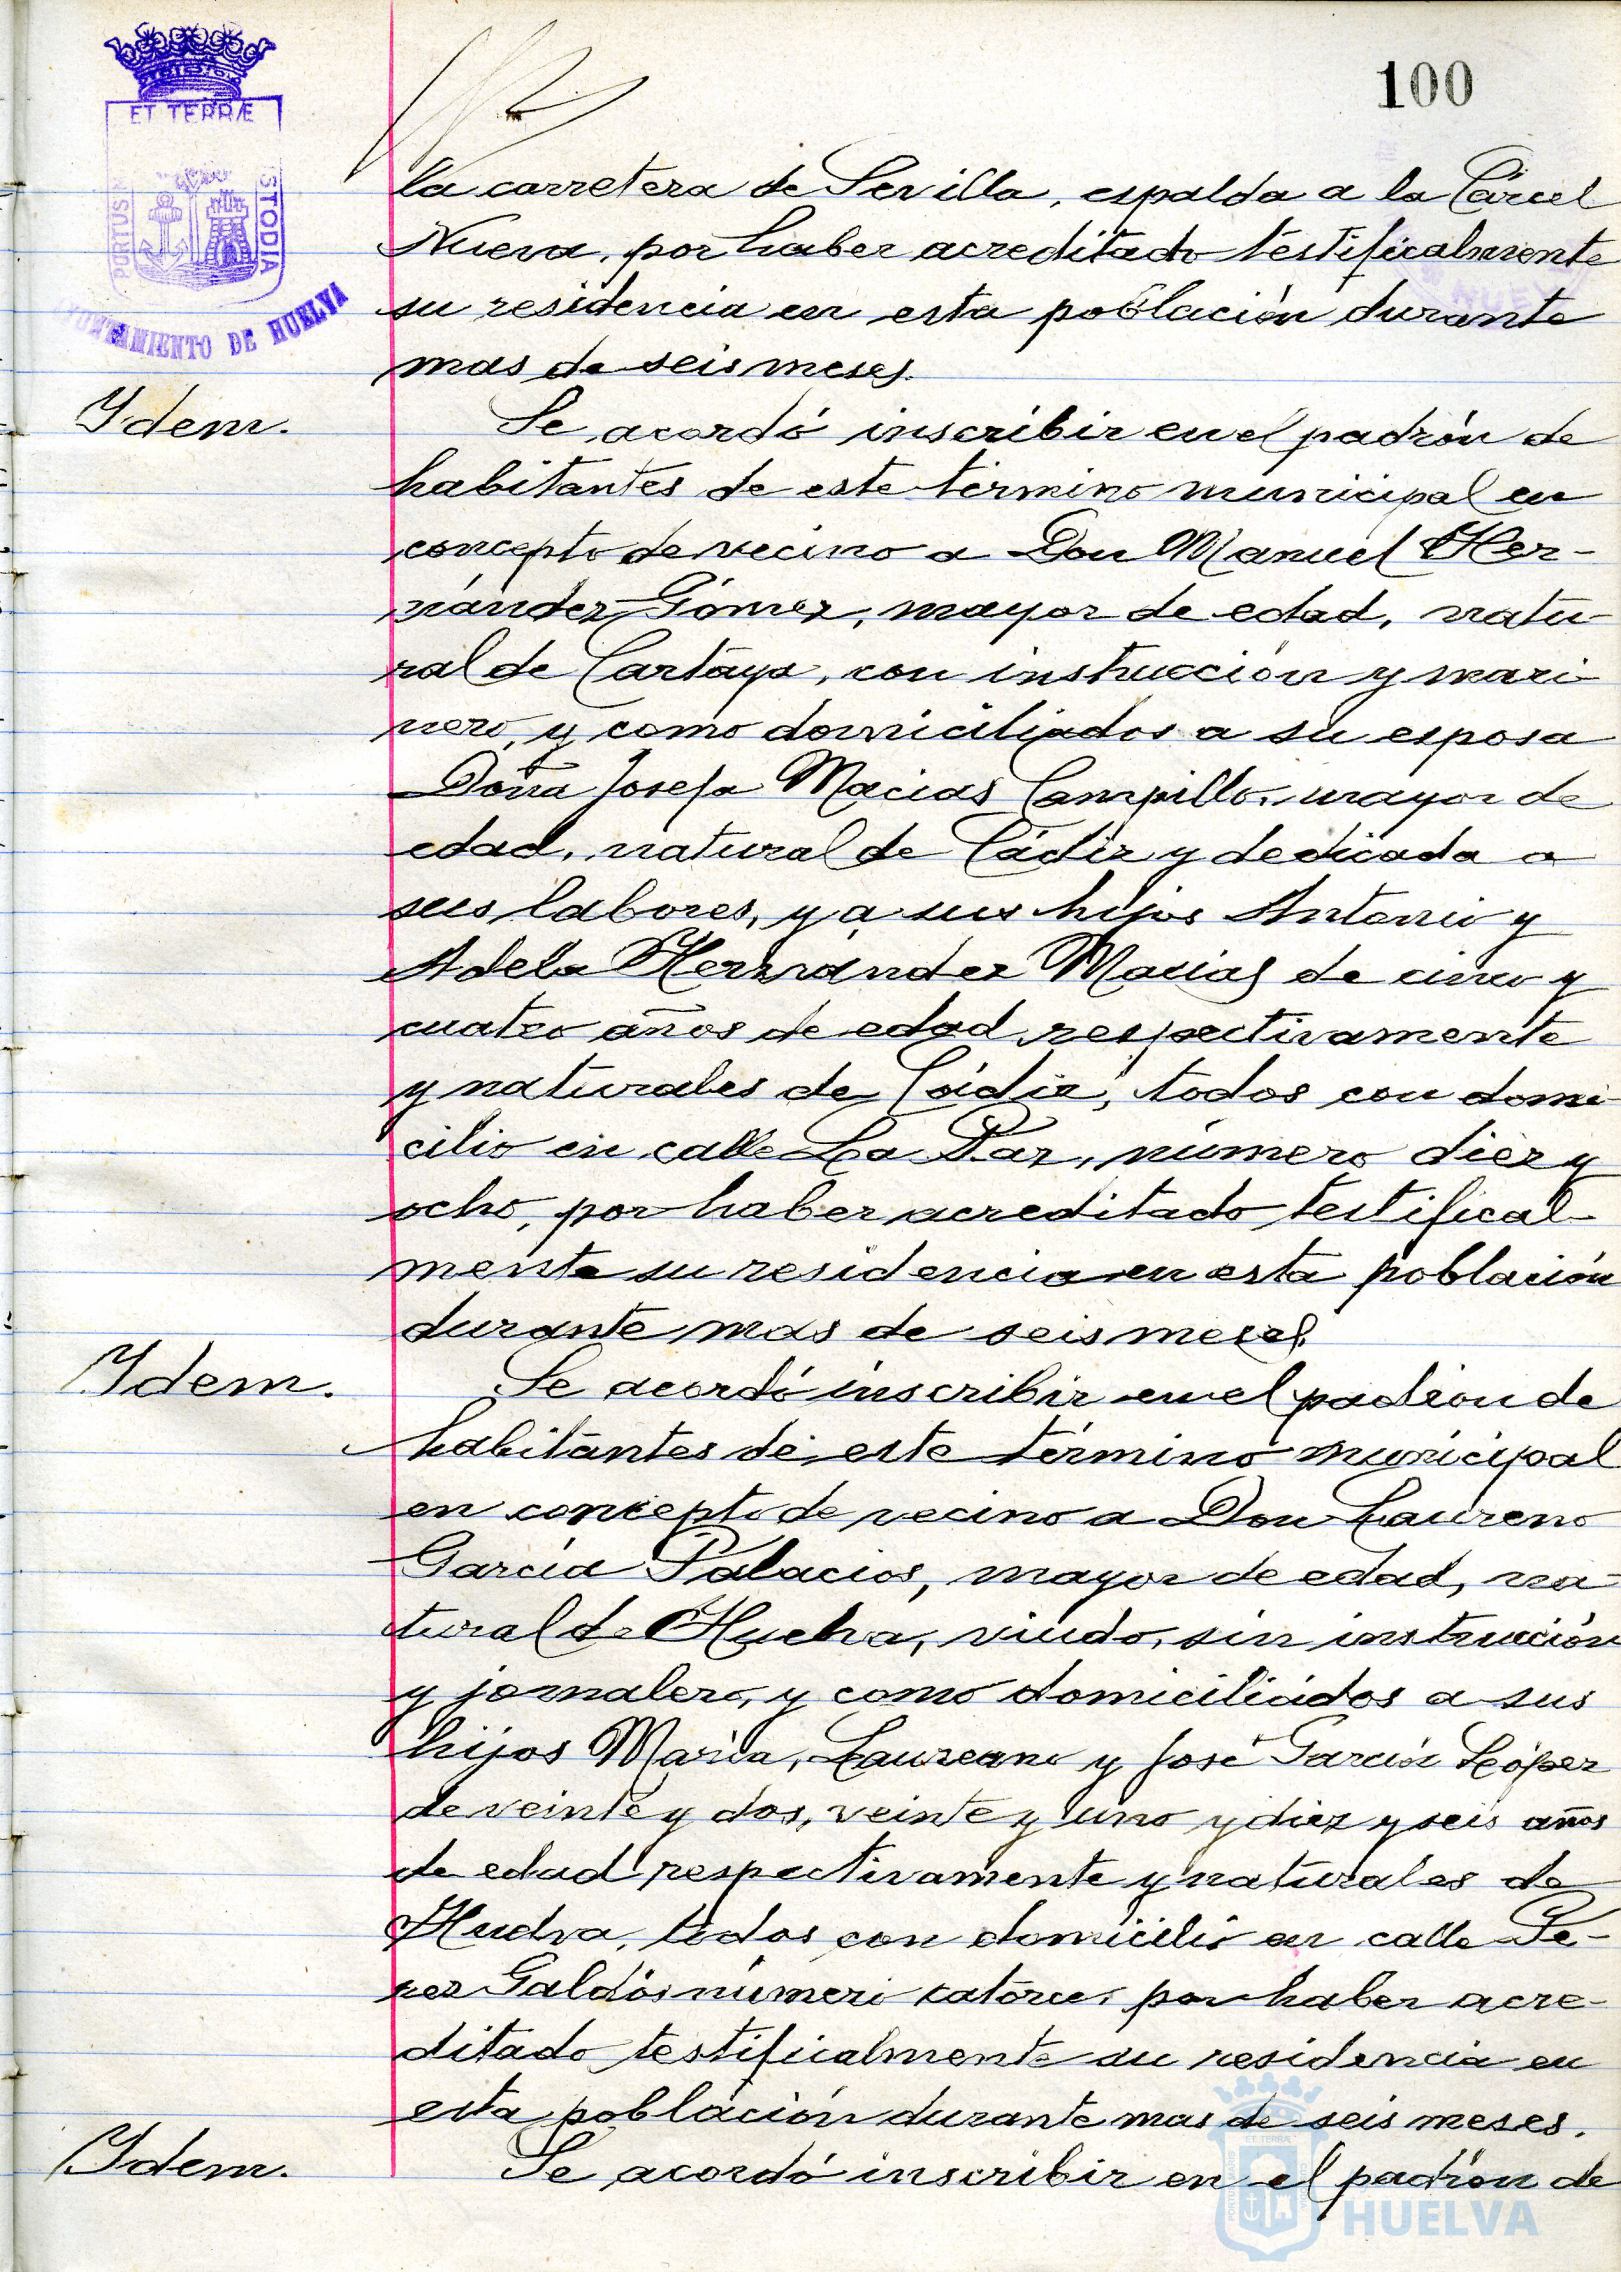 100
ET TERRÆ
PORTUS M
STODIA
AYUNTAMIENTO DE HUELVA
la carretera de Sevilla, espalda a la Cárcel
Nueva, por haber acreditado testificalmente
su residencia en esta población durante
mas de seis meses.
Ydem.
Se acordó inscribir en el padrón de
habitantes de este término municipal en
concepto de vecino a Don Manuel Her-
nández Gómez, mayor de edad, natu-
ral de Cartaya, con instrucción y mari-
nero, y como domiciliados a su esposa
Doña Josefa Macias Campillo, mayor de
edad, natural de Cádiz y dedicada a
sus labores, y a sus hijos Antonio y
Adela Hernández Macias de cinco y
cuatro años de edad respectivamente
y naturales de Cádiz, todos con domi-
cilio en calle La Paz, número diez y
ocho, por haber acreditado testifical-
mente su residencia en esta población
durante mas de seis meses.
Ydem.
Se acordó inscribir en el padrón de
habitantes de este término municipal
en concepto de vecino a Don Laureno
García Palacios, mayor de edad, na-
tural de Huelva, viudo, sin instrucción
y jornalero, y como domiciliados a sus
hijos María, Laureano y José García López
de veinte y dos, veinte y uno y diez y seis años
de edad respectivamente y naturales de
Huelva, todos con domicilio en calle Pe-
rez Galdós número catorce, por haber acre-
ditado testificalmente su residencia en
esta población durante mas de seis meses.
Ydem.
Se acordó inscribir en el padrón de
HUELVA